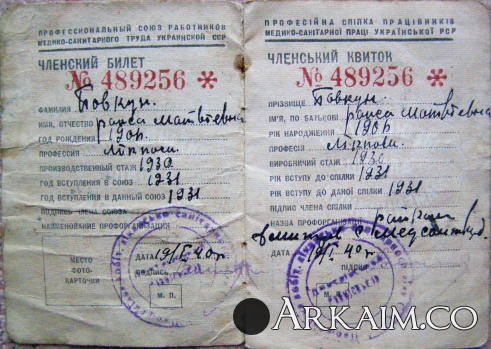 ПРОФЕССИОНАЛЬНЫЙ СОЮЗ РАБОТНИКОВ
МЕДИКО-САНИТАРНОГО ТРУДА УКРАИНСКОЙ ССР
ЧЛЕНСКИЙ БИЛЕТ
№ 489256 *
ФАМИЛИЯ Бовкун
ИМЯ, ОТЧЕСТВО Раиса Матвеевна
ГОД РОЖДЕНИЯ
ПРОФЕССИЯ
ПРОИЗВОДСТВЕННЫЙ СТАЖ 1930
ГОД ВСТУПЛЕНИЯ В СОЮЗ 1931
ГОД ВСТУПЛЕНИЯ В ДАННЫЙ СОЮЗ 1931
ПОДПИСЬ ЧЛЕНА СОЮЗА
НАИМЕНОВАНИЕ ПРОФОРГАНИЗАЦИИ
МЕСТО
ФОТО-
КАРТОЧКИ
ДАТА 19/I 40 г.
ПОДПИСЬ
М. П.
ПРОФЕСІЙНА СПІЛКА ПРАЦІВНИКІВ
МЕДИКО-САНІТАРНОЇ ПРАЦІ УКРАЇНСЬКОЇ РСР
ЧЛЕНСЬКИЙ КВИТОК
№ 489256 *
ПРІЗВИЩЕ Бовкун
ІМ'Я, ПО БАТЬКОВІ Раиса Матвеевна
РІК НАРОДЖЕННЯ
ПРОФЕСІЯ
ВИРОБНИЧИЙ СТАЖ 1930
РІК ВСТУПУ ДО СПІЛКИ 1931
РІК ВСТУПУ ДО ДАНОЇ СПІЛКИ 1931
ПІДПИС ЧЛЕНА СПІЛКИ
НАЗВА ПРОФОРГАНІЗАЦІЇ
ДАТА 19/I 40 г.
ПІДПИС
М.
ARKAIM.CO